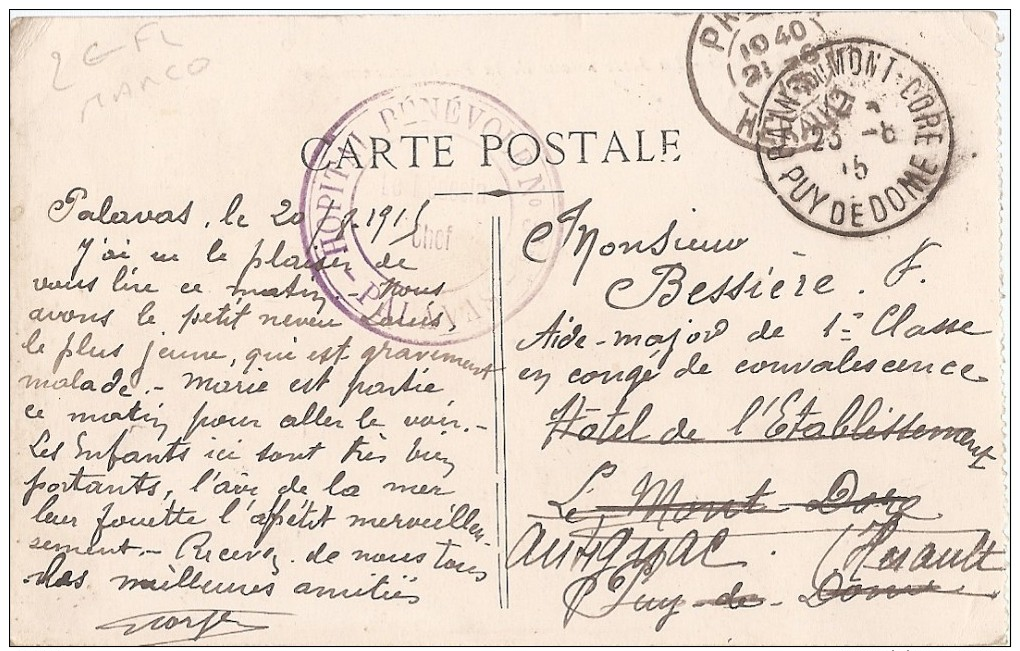 2 G-FL
MARCO
10 40
CARTE POSTALE
HOPITAL BÉNÉVOLE N°
Le Médecin
Chef
BAINS DU MONT-DORE
23 -8
15
PUY DE DOME
Palavas, le 20 8 1915
J'ai eu le plaisir de
vous lire ce matin. - Nous
avons le petit neveu Louis,
le plus jeune, qui est gravement
malade. - Marie est partie
ce matin pour aller le voir. -
Les Enfants ici sont très bien
portants, l'air de la mer
leur fouette l'apétit merveilleu-
sement. - Recevez de nous tous
nos meilleures amitiés
Monsieur
Bessière. F.
Aide-major de 1re Classe
en congé de convalescence
Hôtel de l'Etablissement
Le Mont Dore
(Hérault
Puy-de-Dome